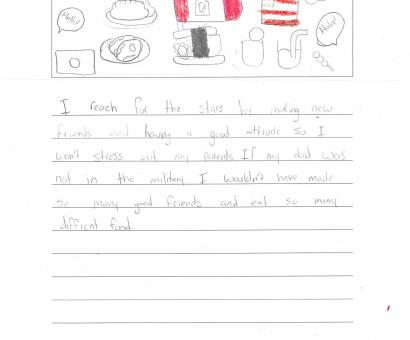 Hello!
Hola!
I reach for the stars by making new
friends and having a good attitude so I
won't stress out my parents If my dad was
not in the military I wouldn't have made
so many good friends and eat so many
difficent food.